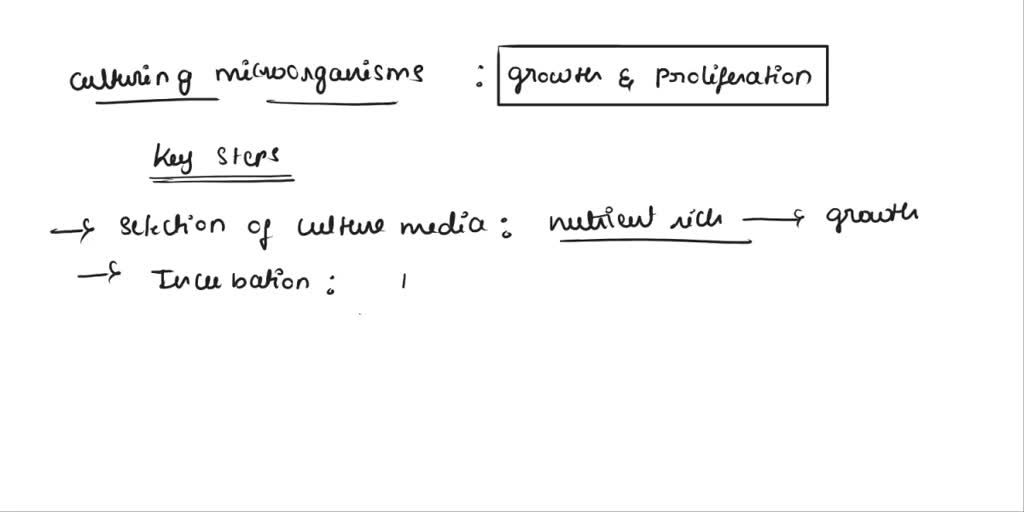 culturing microorganisms : growth & proliferation
Key steps
→ selection of culture media : nutrient rich → growth
→ Incubation :